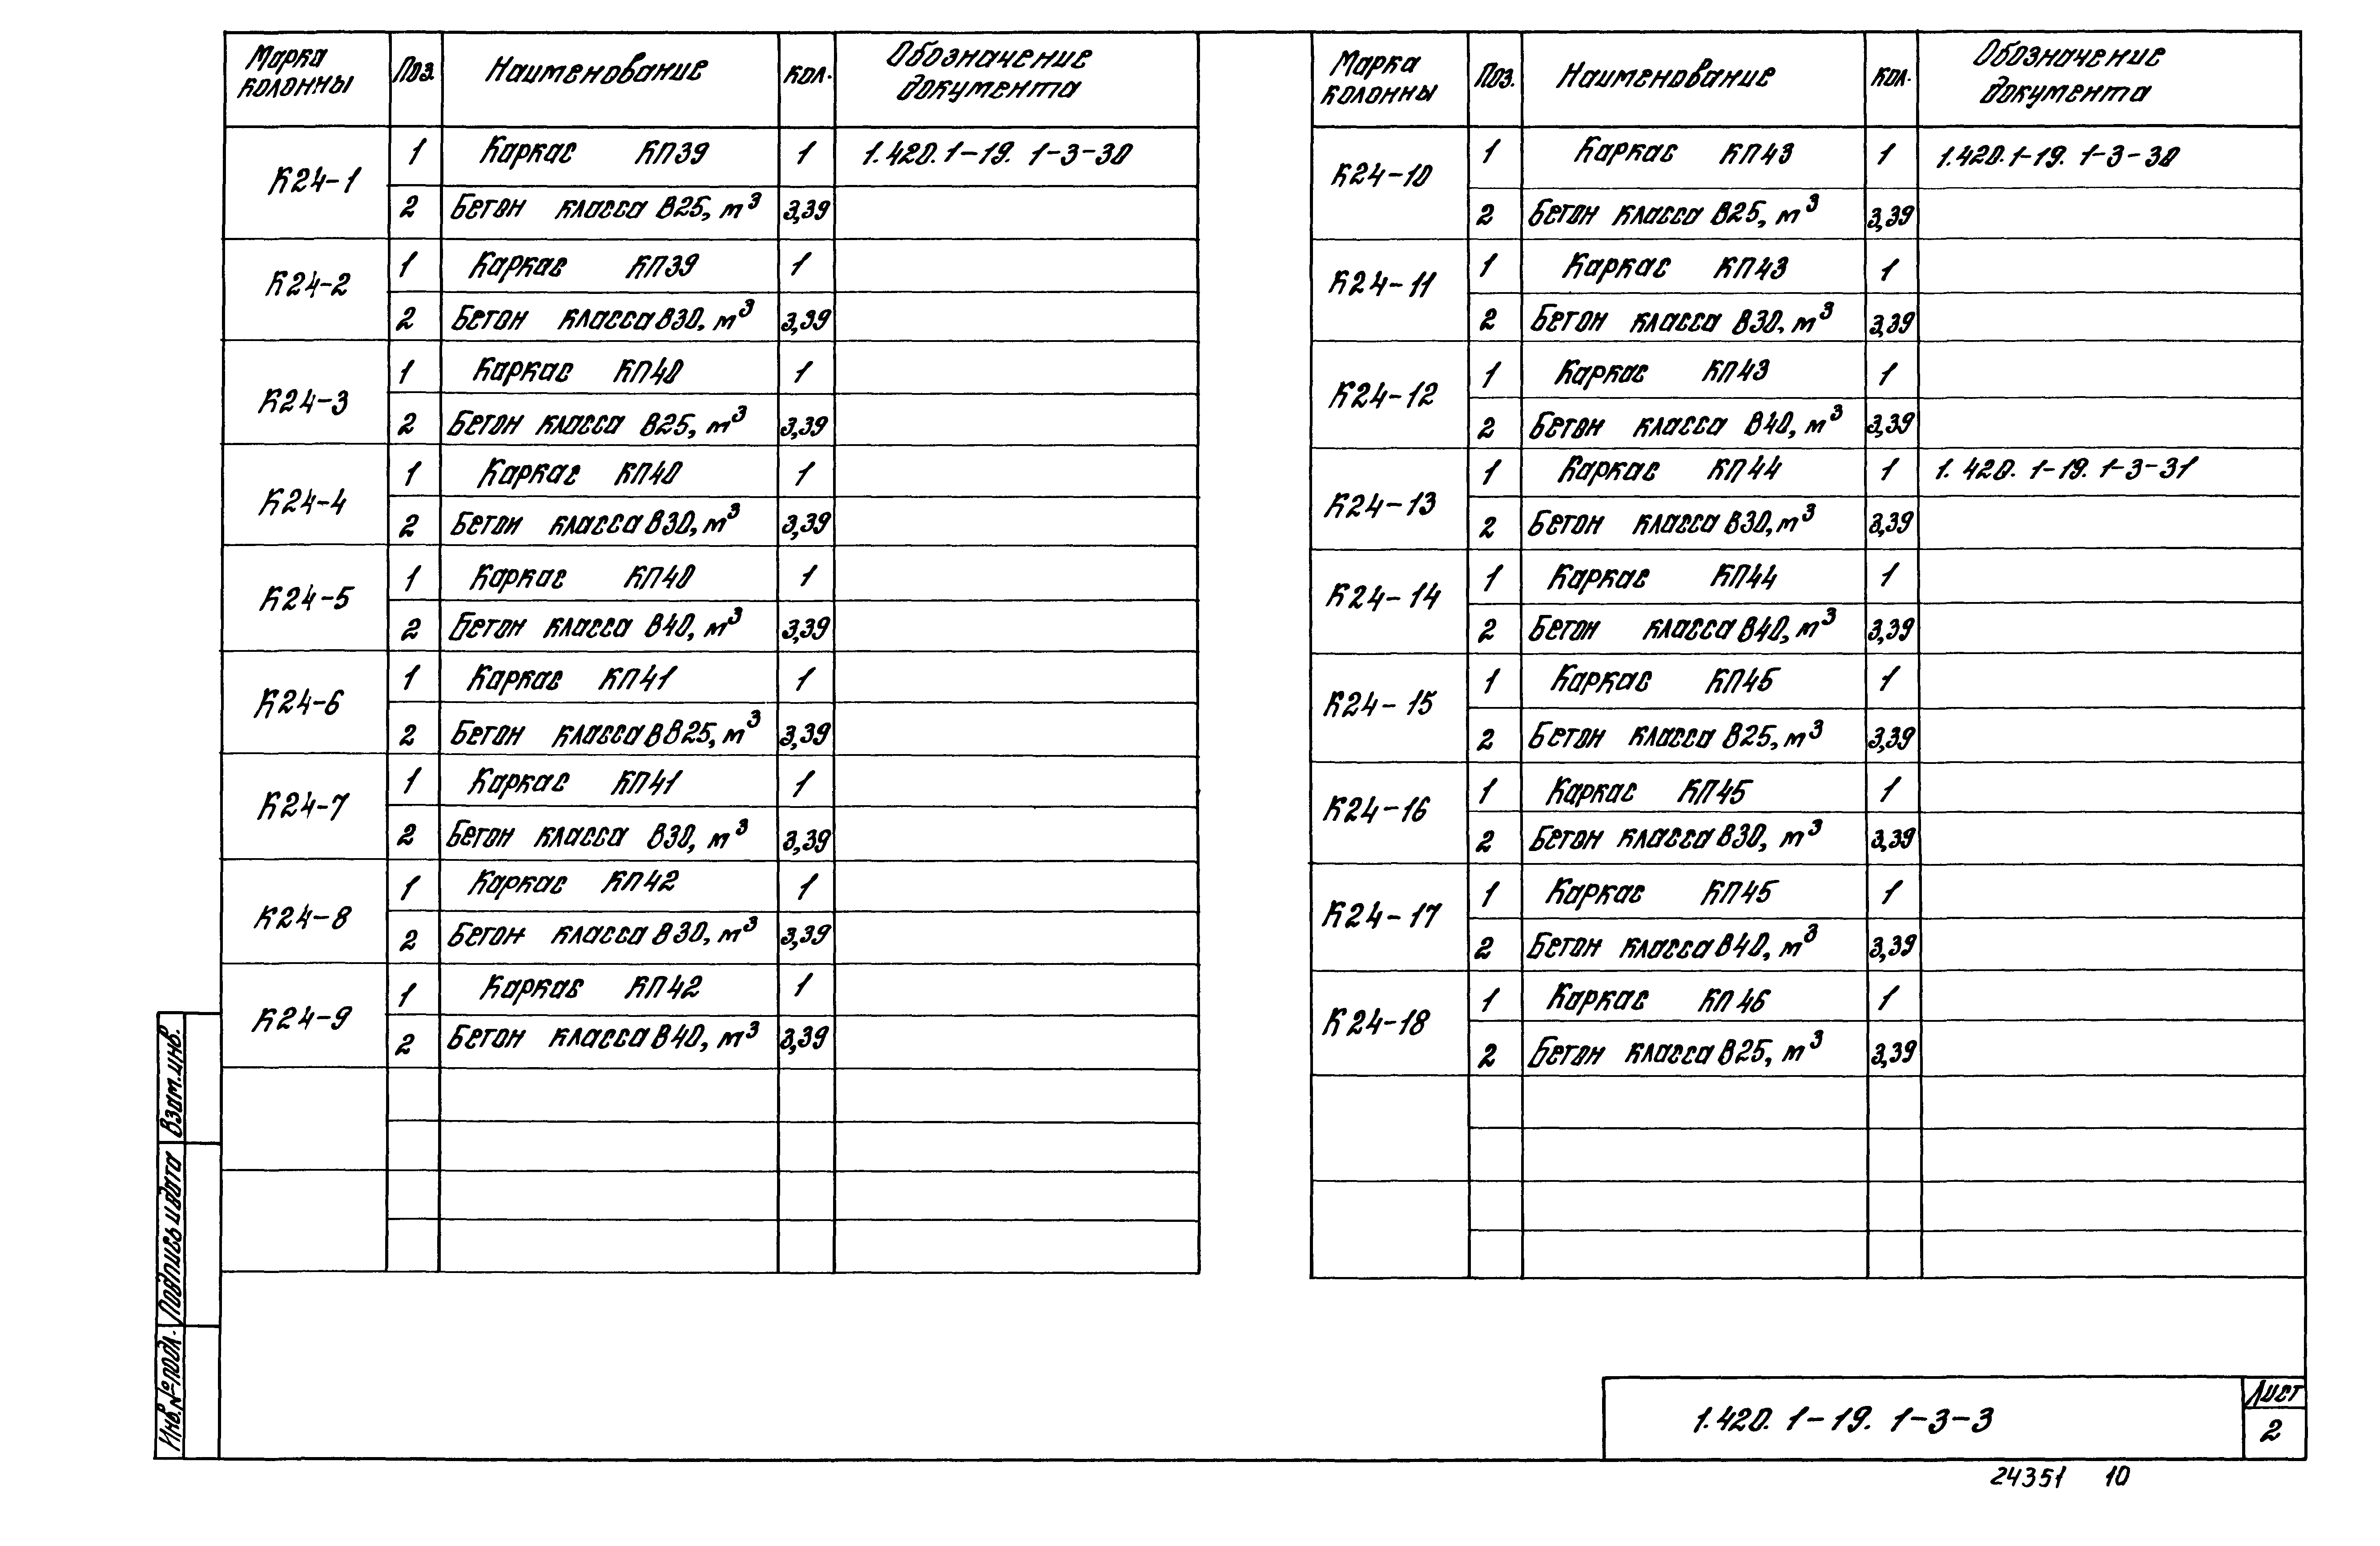 Марка колонны Поз. Наименование Кол. Обозначение документа
К24-1 1 Каркас КП39 1 1.420.1-19. 1-3-30
2 Бетон класса В25, м³ 3,39
К24-2 1 Каркас КП39 1
2 Бетон класса В30, м³ 3,39
К24-3 1 Каркас КП40 1
2 Бетон класса В25, м³ 3,39
К24-4 1 Каркас КП40 1
2 Бетон класса В30, м³ 3,39
К24-5 1 Каркас КП40 1
2 Бетон класса В40, м³ 3,39
К24-6 1 Каркас КП41 1
2 Бетон класса ВВ25, м³ 3,39
К24-7 1 Каркас КП41 1
2 Бетон класса В30, м³ 3,39
К24-8 1 Каркас КП42 1
2 Бетон класса В30, м³ 3,39
К24-9 1 Каркас КП42 1
2 Бетон класса В40, м³ 3,39
Марка колонны Поз. Наименование Кол. Обозначение документа
К24-10 1 Каркас КП43 1 1.420.1-19. 1-3-30
2 Бетон класса В25, м³ 3,39
К24-11 1 Каркас КП43 1
2 Бетон класса В30, м³ 3,39
К24-12 1 Каркас КП43 1
2 Бетон класса В40, м³ 3,39
К24-13 1 Каркас КП44 1 1.420. 1-19. 1-3-31
2 Бетон класса В30, м³ 3,39
К24-14 1 Каркас КП44 1
2 Бетон класса В40, м³ 3,39
К24-15 1 Каркас КП45 1
2 Бетон класса В25, м³ 3,39
К24-16 1 Каркас КП45 1
2 Бетон класса В30, м³ 3,39
К24-17 1 Каркас КП45 1
2 Бетон класса В40, м³ 3,39
К24-18 1 Каркас КП46 1
2 Бетон класса В25, м³ 3,39
Взам.инв.
Подпись и дата
Инв.№подл.
1.420. 1-19. 1-3-3
Лист
2
24351 10